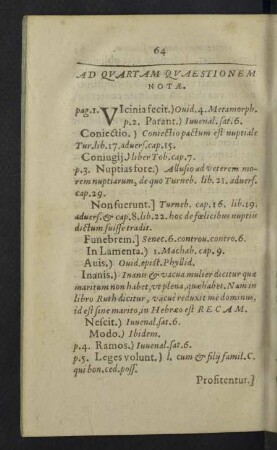 64
AD QVARTAM QVAESTIONEM
NOTÆ.
pag.1. VIcinia fecit.) Ouid.4.Metamorph.
p.2. Parant.) Iuuenal.sat.6.
Coniectio.) Coniectio pactum est nuptiale
Tur.lib.17.aduers.cap.15.
Coniugij.) liber Tob.cap.7.
p.3. Nuptias fore.) Allusio ad veterem mo-
rem nuptiarum, de quo Turneb. lib.21.aduers.
cap.29.
Non fuerunt.) Turneb. cap.16. lib.19.
aduers.& cap.8.lib.22. hoc de fœlicibus nuptiis
dictum fuisse tradit.
Funebrem.] Senec.6.controu.contro.6.
In Lamenta.) 1.Machab. cap.9.
Auis.) Ouid.epist.Phyllid.
Inanis.) Inanis & vacua mulier dicitur quæ
maritum non habet, vt plena, quæ habet. Nam in
libro Ruth dicitur, vacuā reduxit me dominus,
id est sine marito, in Hebræo est RECAM.
Nescit.) Iuuenal.sat.6.
Modo.) Ibidem.
p.4. Ramos.) Iuuenal.sat.6.
p.5. Leges volunt.) l. cum & filij famil.C.
qui bon.ced.poss.
Profitentur.]